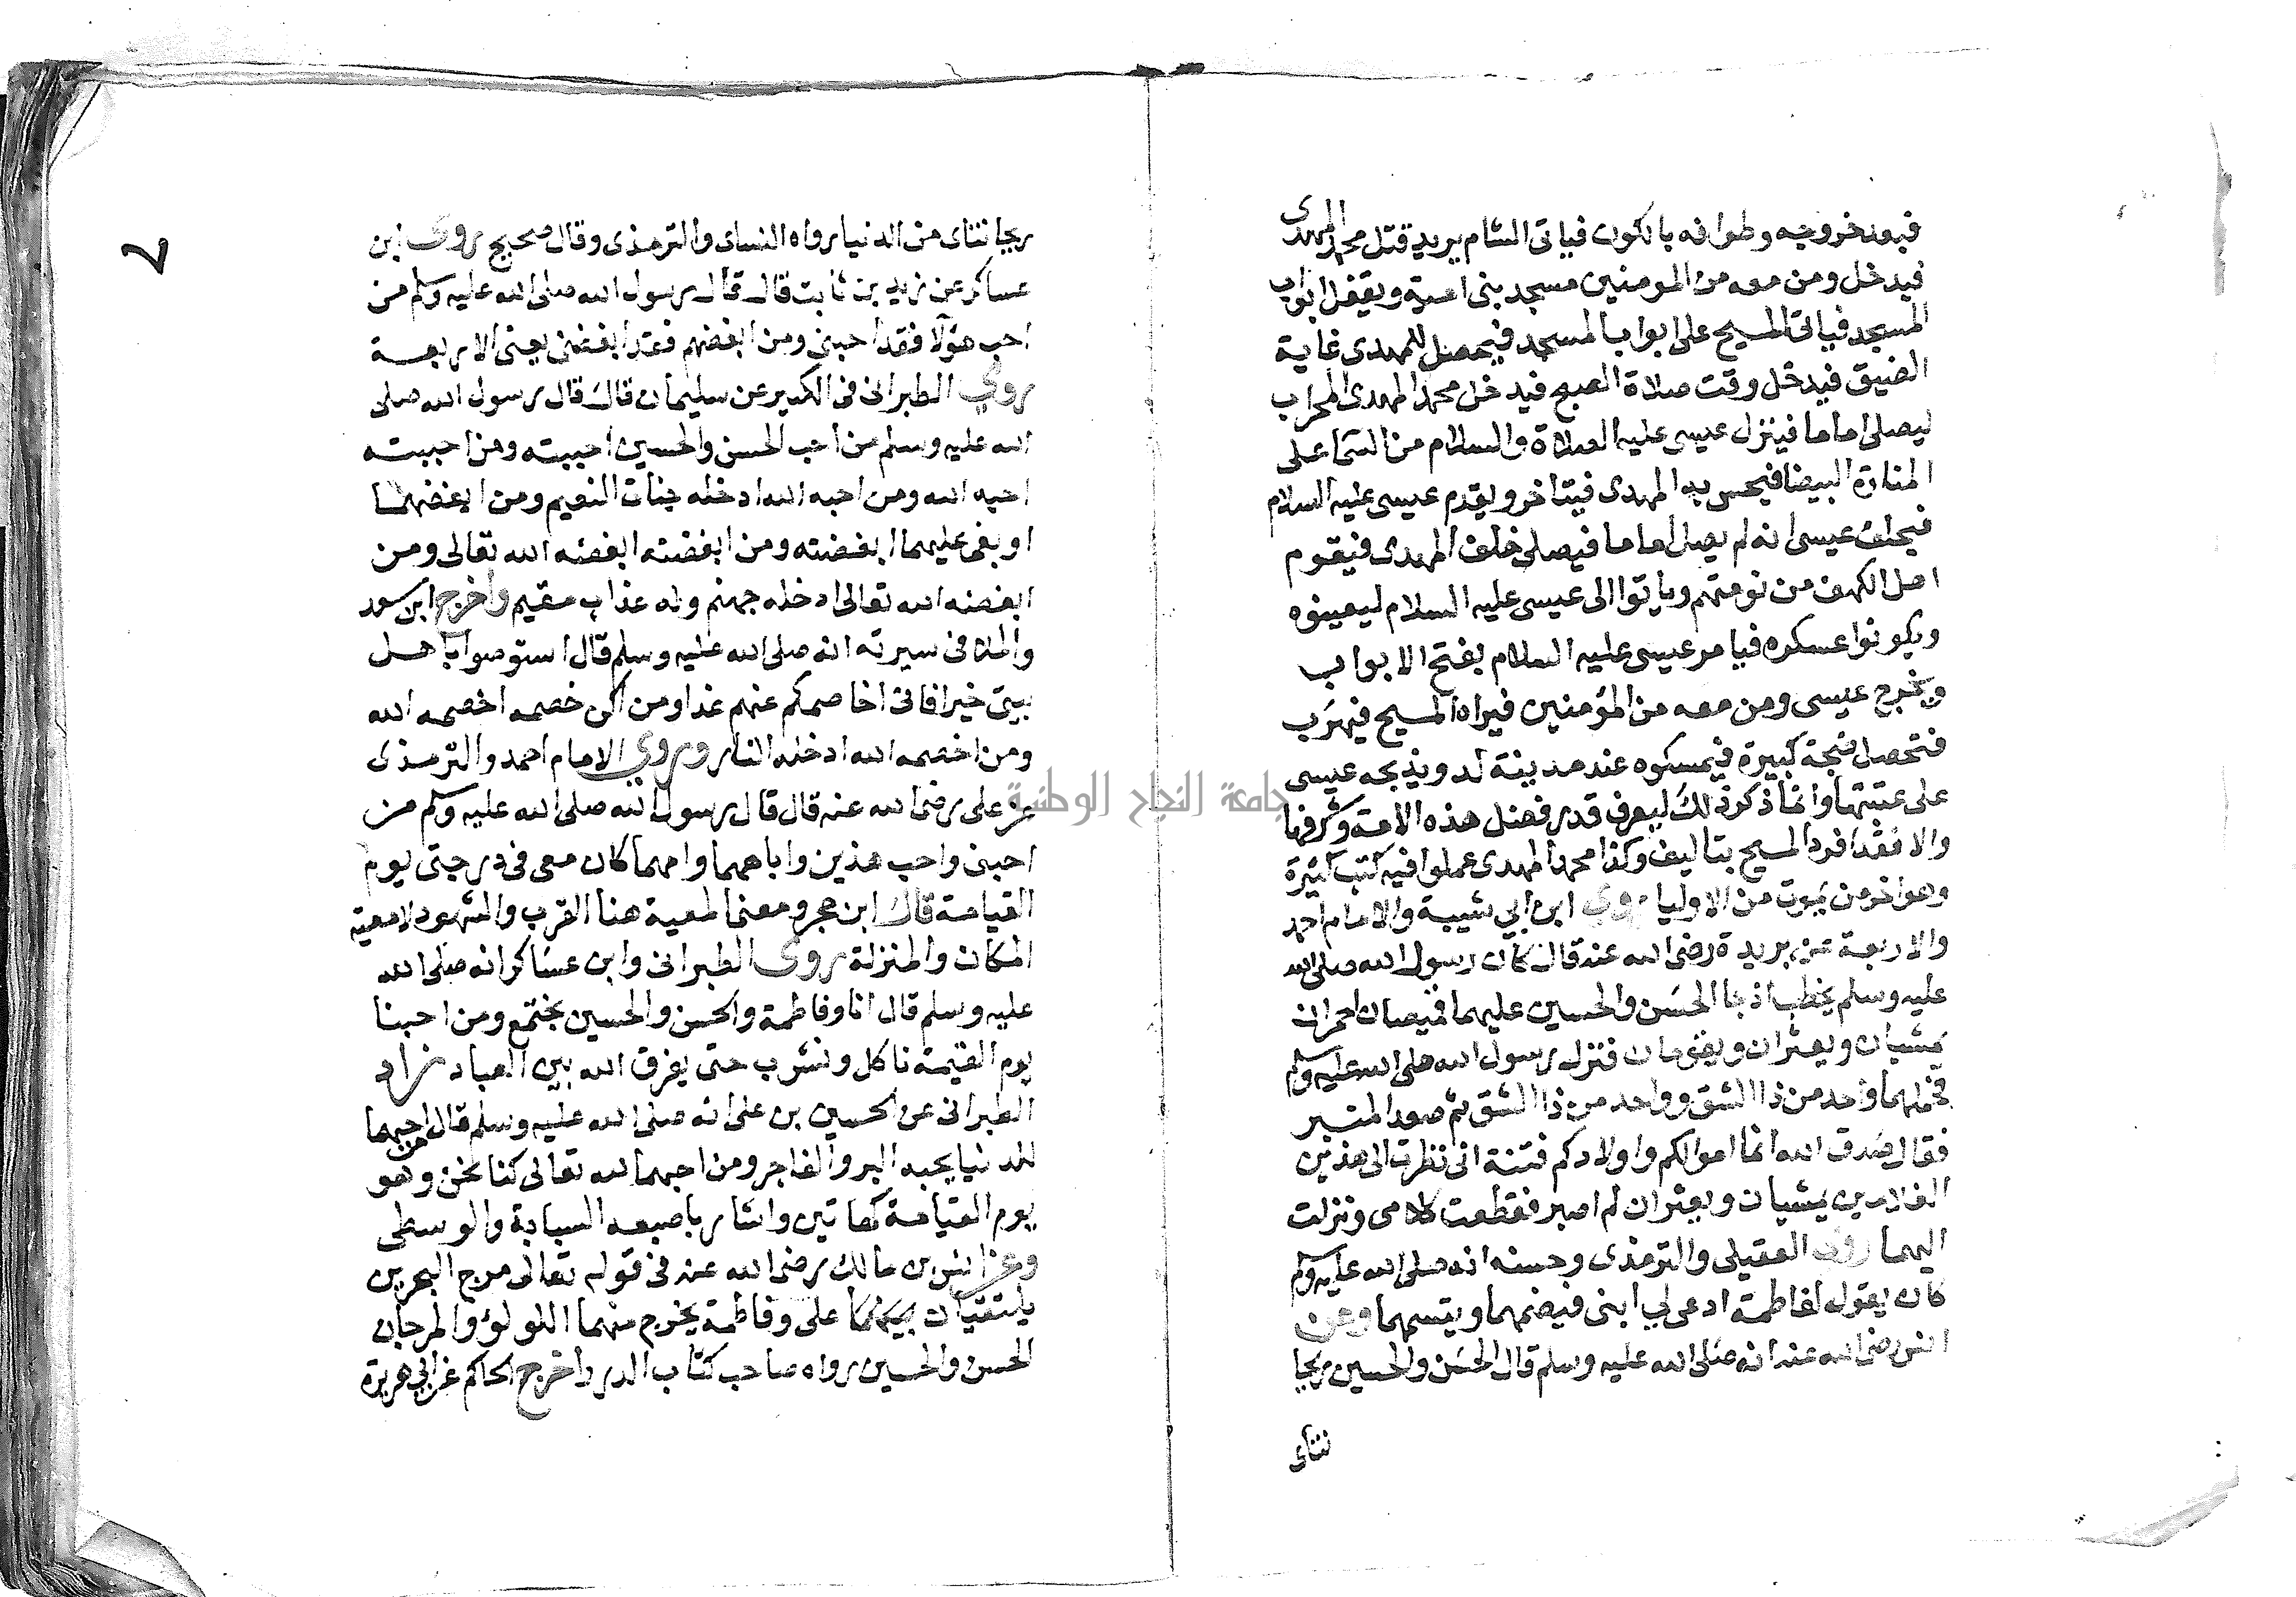 فبعد خروجه وطوافه بالكون فياتى الشام يريد قتل محمد المهدى
فيدخل ومن معه من المومنين مسجد بنى امية ويقفل ابواب
المسجد فياتى المسيح على ابواب المسجد فيحصل للمهدى غاية
الضيق فيدخل وقت صلاة الصبح فيدخل محمد المهدى المحراب
ليصلى اماما فينزل عيسى عليه الصلاة والسلام من السما على
المنارة البيضا فيحس به المهدى فيتاخر ويقدم عيسى عليه السلام
فيحلف عيسى انه لم يصل اماما فيصلى خلف المهدى فيقوم
اهل الكهف من نومتهم وياتوا الى عيسى عليه السلام ليعينوه
ويكونوا عسكره فيامر عيسى عليه السلام بفتح الابواب
ويخرج عيسى ومن معه من المؤمنين فيراه المسيح فيهرب
فتحصل ضجة كبيرة فيمسكوه عند مدينة لد ويذبحه عيسى
على عتبتها وانما ذكر ذلك ليعرف قدر فضل هذه الامة وشرفها
والا فقد افرد المسيح بتاليف وكذا محمد المهدى عملوا فيه كتب كثيرة
وهو اخر من يموت من الاوليا روى ابن ابي شيبة والامام احمد
والاربعة عن بريدة رضى الله عنه قال كان رسول الله صلى الله
عليه وسلم يخطب اذ جا الحسن والحسين عليهما قميصان احمران
يمشيان ويعثران ويقومان فنزل رسول الله صلى الله عليه وسلم
فحملهما واحد من ذا الشق وواحد من ذا الشق ثم صعد المنبر
فقال صدق الله انما اموالكم واولادكم فتنة انى نظرت الى هذين
الغلامين يمشيان ويعثران لم اصبر فقطعت كلامى ونزلت
اليهما روى العقيلى والترمذى وحسنه انه صلى الله عليه وسلم
كان يقول لفاطمة ادعى لي ابنى فيضمهما ويشمهما وعن
انس رضى الله عنه انه صلى الله عليه وسلم قال الحسن والحسين ريحا
نتاى
ريحانتاى من الدنيا رواه النساى والترمذى وقال صحيح روى ابن
عساكر عن زيد بن ثابت قال قال رسول الله صلى الله عليه وسلم من
احب هؤلا فقد احبنى ومن ابغضهم فقد ابغضنى يعنى الاربعة
روي الطبرانى فى الكبير عن سليمان قال قال رسول الله صلى
الله عليه وسلم من احب الحسن والحسين احببته ومن احببته
احبه الله ومن احبه الله ادخله جنات النعيم ومن ابغضهما
او بغى عليهما ابغضته ومن ابغضته ابغضه الله تعالى ومن
ابغضه الله تعالى ادخله جهنم وله عذاب مقيم واخرج ابن سعد
والملا فى سيرته انه صلى الله عليه وسلم قال استوصوا باهل
بيتى خيرا فانى اخاصمكم عنهم غدا ومن اكن خصمه اخصمه الله
ومن اخصمه الله ادخله النار وروي الامام احمد والترمذى
عن على رضى الله عنه قال قال رسول الله صلى الله عليه وسلم من
احبنى واحب هذين واباهما وامهما كان معى فى درجتى يوم
القيامة قال ابن حجر ومعنى المعية هنا القرب والشهود لا معية
المكان والمنزلة روى الطبرانى وابن عساكر انه صلى الله
عليه وسلم قال انا وفاطمة والحسن والحسين نجتمع ومن احبنا
يوم القيمة ناكل ونشرب حتى يفرق الله بين العباد زاد
الطبرانى عن الحسين بن على انه صلى الله عليه وسلم قال من احبهما
للدنيا يحبه البر والفاجر ومن احبهما لله تعالى كنا نحن وهو
يوم القيامة كهاتين واشار باصبعه السبابة والوسطى
وعن انس بن مالك رضى الله عنه فى قوله تعالى مرج البحرين
يلتقيان بينهما على وفاطمة يخرج منهما اللولؤ والمرجان
الحسن والحسين رواه صاحب كتاب الدر واخرج الحاكم عن ابى هريرة
جامعة النجاح الوطنية